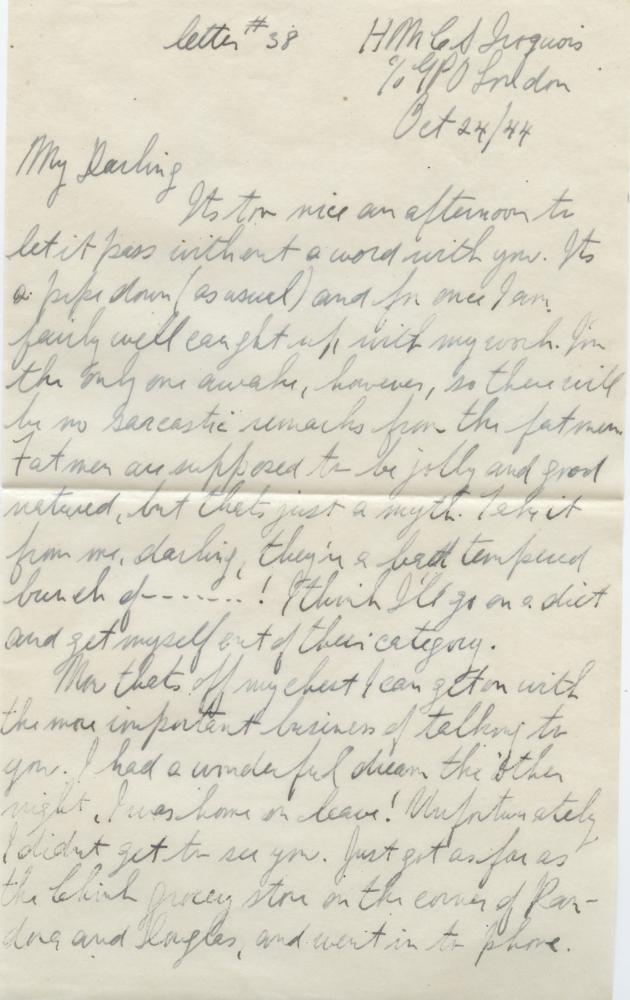 letter #38
HMCS Iroquois
c/o GPO London
Oct 24/44
My Darling
Its too nice an afternoon to
let it pass without a word with you. Its
a pipe down (as usual) and for once I am
fairly well caught up with my work. I'm
the only one awake, however, so there will
be no sarcastic remarks from the fat men.
Fat men are supposed to be jolly and good
natured, but thats just a myth. Take it
from me, darling, they're a bad tempered
bunch of -------! I think I'll go on a diet
and get myself out of their category.
Now thats off my chest I can get on with
the more important business of talking to
you. I had a wonderful dream the other
night, I was home on leave! Unfortunately
I didnt get to see you. Just got as far as
the Chink grocery store on the corner of
and Douglas, and went in to phone.